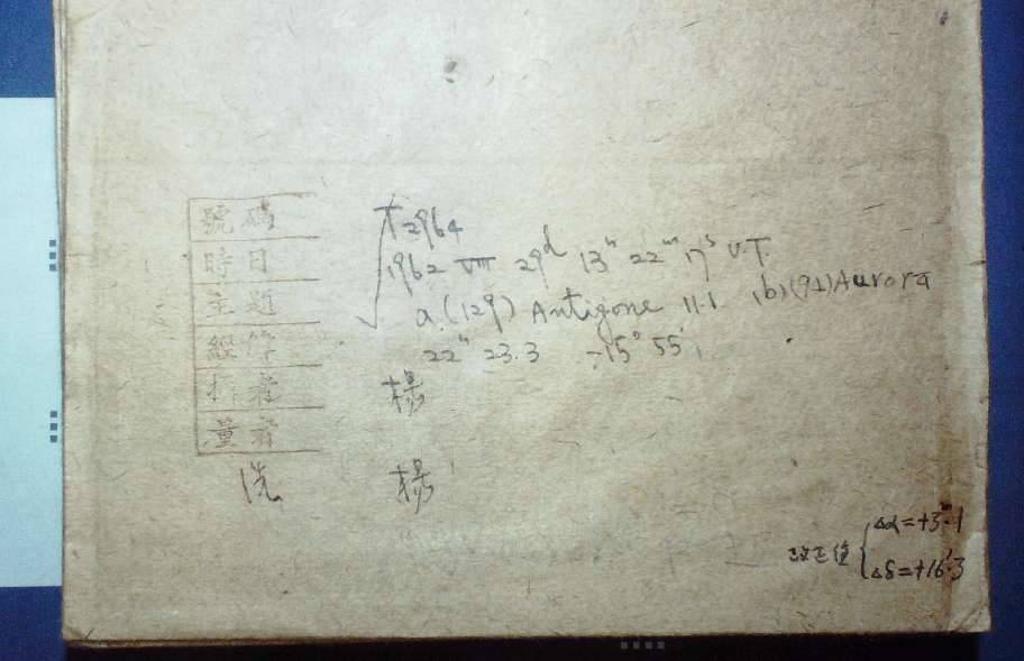 號碼 T2964
時日 1962 VIII 29d 13h 22m 17s U.T.
主題 a.(129) Antigone 11.1 (b)(94)Aurora
經緯 22h 23.3 -15° 55'
拍者 楊
量者
洗 楊
改正值 { Δα=+3m.1
Δδ=+16'.3